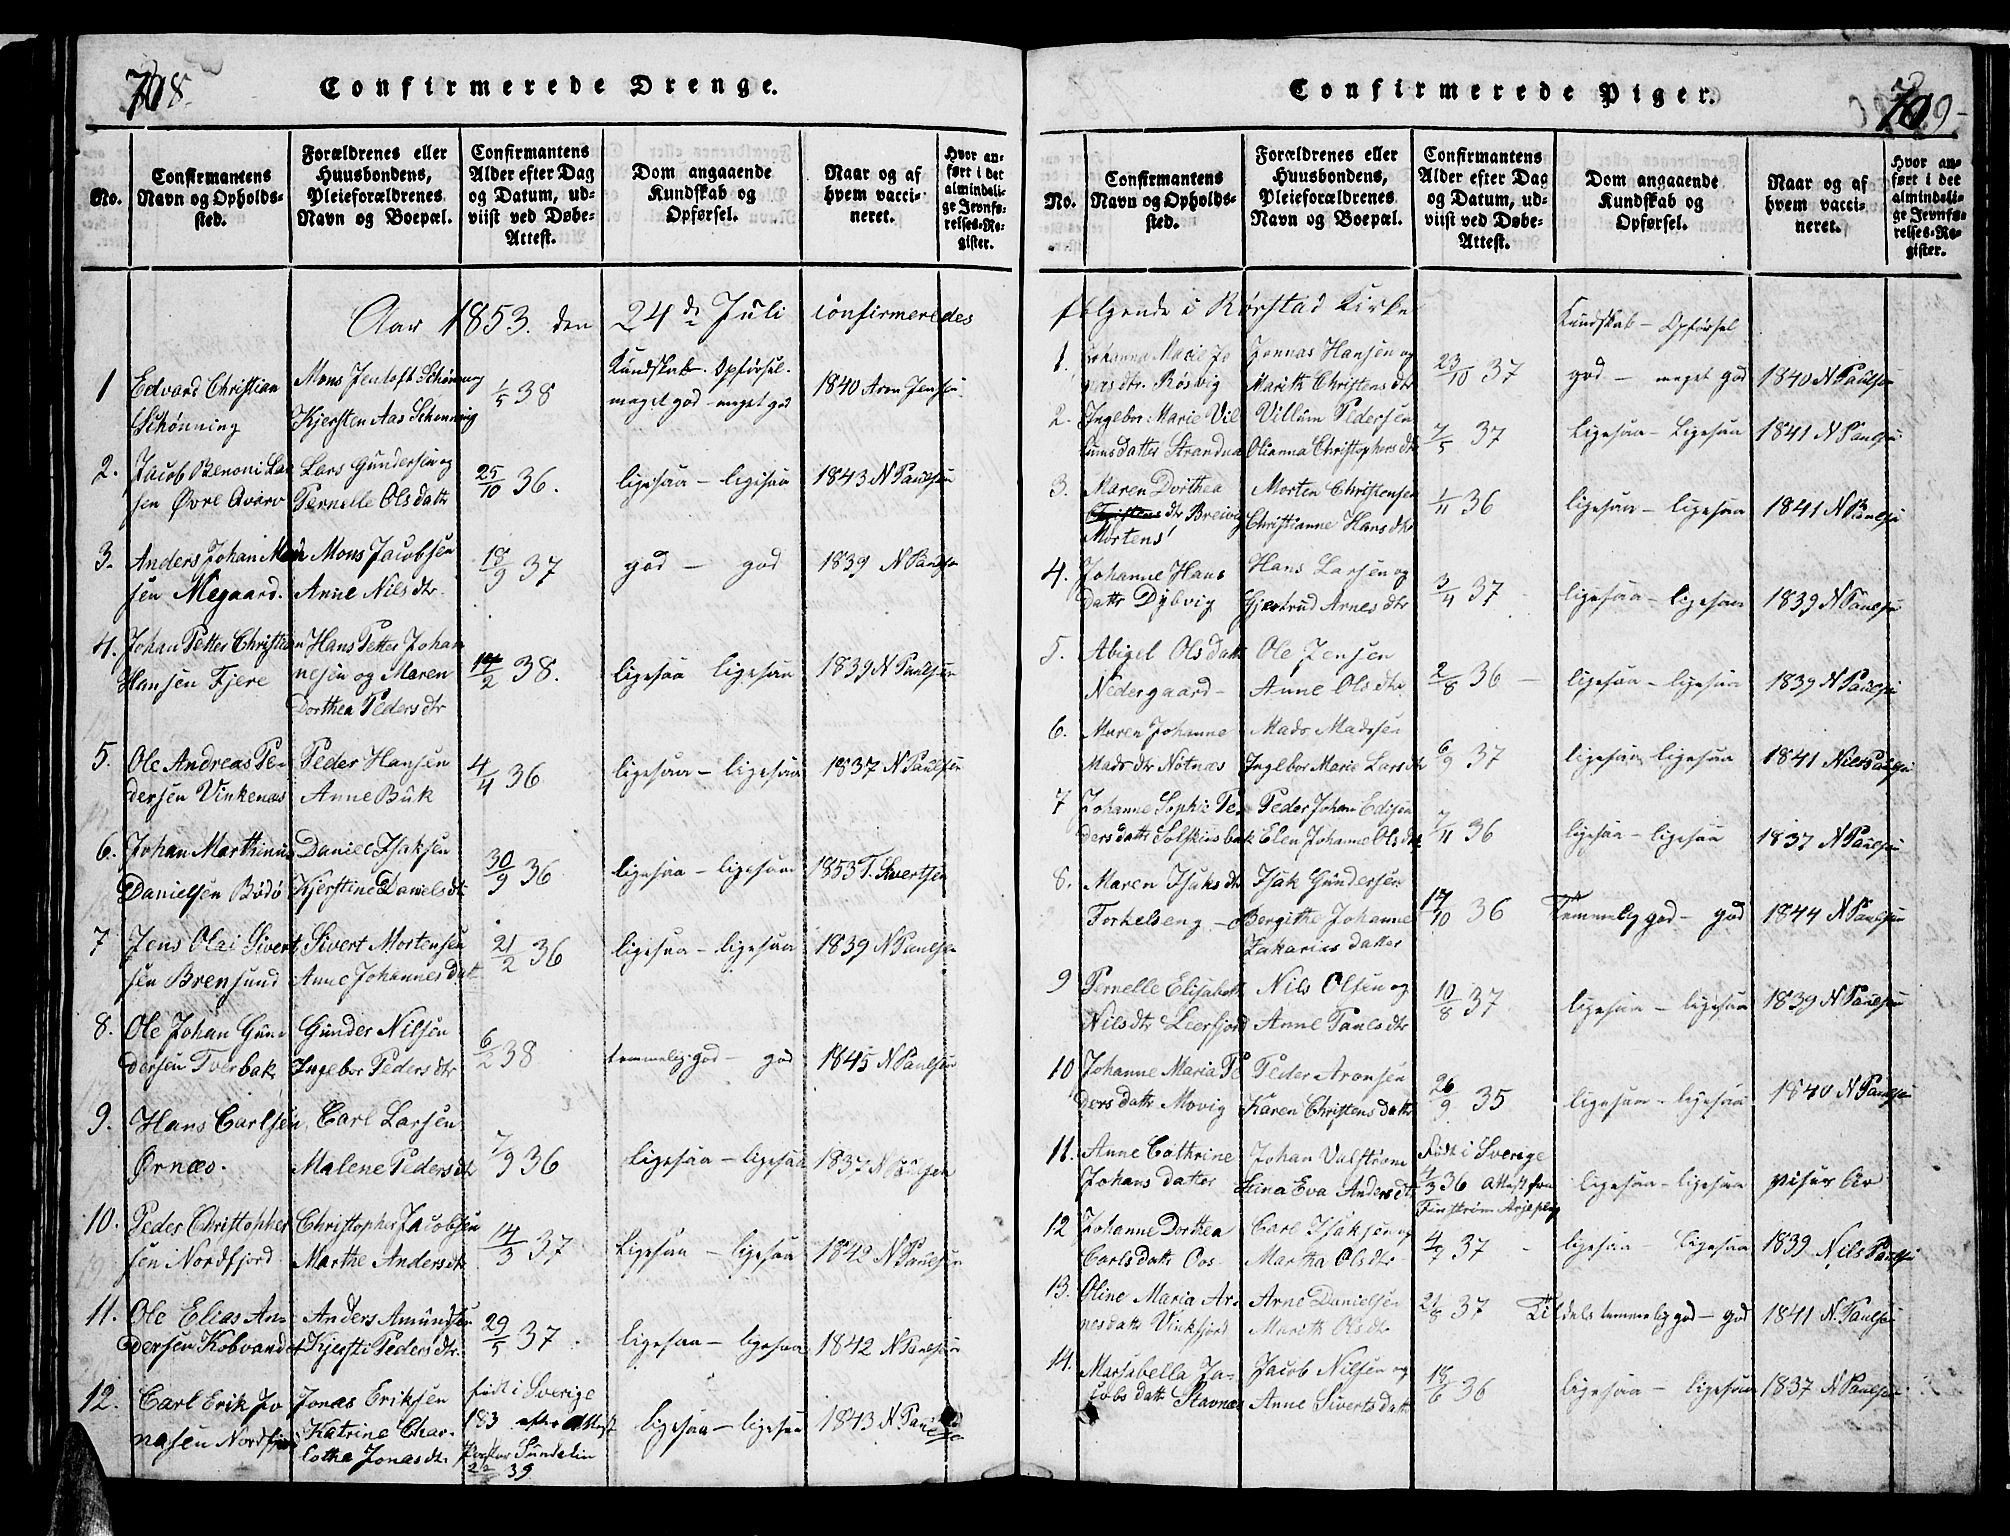 708.
Confirmerede Drenge.
No.
Confirmantens Navn og Opholdssted.
Forældrenes eller Huusbondens, Pleieforældrenes Navn og Boepæl.
Confirmantens Alder efter Dag og Datum, udviist ved Døbe-Attest.
Dom angaaende Kundskab og Opførsel.
Naar og af hvem vaccineret.
Hvor anført i det almindelige Jevnførelses-Register.
Aar 1853. den 24de Juli confirmeredes
Kundskab - Opførsel.
1 Edvard Christian Mons Jentoft Schønning 1/5 38 meget god - meget god 1840 Aron Jensen
Schønning Kjersten Aas Schønning
2. Jacob Benoni Lar Lars Gundersen og 25/10 36. ligesaa - ligesaa 1843 N Paulsen
sen Øvre Qvarv Pernelle Olsdattr
3. Anders Johan Mon Mons Jacobsen 18/9 37 god - god 1839 N Paulsen
sen Megaard. Anne Nilsdtr.
4. Johan Petter Christian Hans Petter Johan 14/2 38. ligesaa ligesaa 1839 N Paulsen
Hansen Fjere nesen og Maren
Dorthea Pedersdtr
5. Ole Andreas Pe- Peder Hansen 4/4 36 ligesaa - ligesaa 1837 N Paulsen
dersen Vinkenæs Anne Buk
6. Johan Marthinus Daniel Isaksen 30/9 36 ligesaa - ligesaa 1853 T. Sivertsen
Danielsen Bødø Kjerstine Danielsdtr
7 Jens Olai Sivert Sivert Mortensen 21/2 36 ligesaa - ligesaa 1839 N Paulsen
sen Brensund Anne Johannesdatt
8. Ole Johan Gun Gunder Nilsen 6/2 38 temmelig god - god 1845 N Paulsen
dersen Tverbak Ingebor Pedersdtr
9. Hans Carlsen Carl Larsen 7/9 36 ligesaa - ligesaa 1837 N Paulsen
Ørnæs. Malene Pedersdtr
10. Peder Christopher Christopher Jacobsen 14/3 37 ligesaa - ligesaa 1842 N Paulsen
sen Nordfjord Marthe Andersdtr
11. Ole Elias An- Anders Amundsen 29/5 37 ligesaa - ligesaa 1842 N Paulsen
dersen Kobvandet Kjersti Pedersdtr.
12. Carl Erik Jo Jonas Eriksen født i Sverige ligesaa - ligesaa 1843 N Paulsen
nasen Nordfjord Katrine Char- 183 efter Attest
lotha Jonasdtr. Pastor Sundelin
39
709
Confirmerede Piger.
No.
Confirmantens Navn og Opholdssted.
Forældrenes eller Huusbondens, Pleieforældrenes Navn og Boepæl.
Confirmantens Alder efter Dag og Datum, udviist ved Døbe-Attest.
Dom angaaende Kundskab og Opførsel.
Naar og af hvem vaccineret.
Hvor anført i det almindelige Jevnførelses-Register.
følgende i Rørstad Kirke Kundskab - Opførsel
1. Johanna Marie Jo Jonnas Hansen og 23/10 37 god - meget god 1840 N Paulsen
nasdtr. Røsvig Marith Christensdtr
2. Ingebor Marie Vil Villum Pedersen 7/5 37 ligesaa - ligesaa 1841 N Paulsen
lumsdatter Strandna Olianna Christophersdtr
3. Maren Dorthea Morten Christensen 1/11 36 ligesaa - ligesaa 1841 N Paulsen
Christensdtr Breivig Christianne Hansdtr
Mortens
4. Johanne Hans Hans Larsen og 3/4 37 ligesaa - ligesaa 1839 N Paulsen
dattr Dybvig Gjertrud Arnesdtr
5. Abigel Olsdattr Ole Jensen 2/8 36 ligesaa - ligesaa 1837 N Paulsen
Nedergaard - Anne Olsdtr
6. Maren Johanne Mads Madssen 6/9 37 ligesaa ligesaa 1841 Nils Paulsen
Madsdtr Nøtnæs Ingebor Marie Larsdtr
7 Johanne Sophie Pe- Peder Johan Edisen 7/11 36 ligesaa - ligesaa 1837 N Paulsen
dersdattr Solskinsbak Elen Johanne Olsdtr
8. Maren Isaksdtr Isak Gundersen 14/10 36 Temmelig god - god 1844 N Paulsen
Torkelseng - Bergithe Johanne
Zakariasdatter
9 Pernelle Elisabeth Nils Olsen og 10/8 37 ligesaa - ligesaa 1839 N Paulsen
Nilsdtr Leerfjord Anne Paulsdtr
10 Johanne Maria Pe Peder Aronsen 26/9 35 ligesaa - ligesaa 1840 N Paulsen
dersdattr Movig Karen Christensdattr
11. Anne Cathrine Johan Valstrøm født i Sverige ligesaa - ligesaa viser Ar
Johansdatter Stina Eva Andersdtr 4/3 36 Attest fra
Arjeplog
12 Johanne Dorthea Carl Isaksen og 4/7 37 - ligesaa - ligesaa 1839 Nils Paulsen
Carlsdattr Oos Martha Olsdtr
13. Oline Maria Ar- Arne Danielsen 21/8 37 Til dels temmelig god - god 1841 N. Paulsen
nesdattr Vinkfjord Marith Olsdtr
14. Martabella Ja- Jacob Nilsen og 18/6 36 ligesaa - ligesaa 1837 N Paulsen
cobsdattr Stavnæs Anne Sivertsdattr